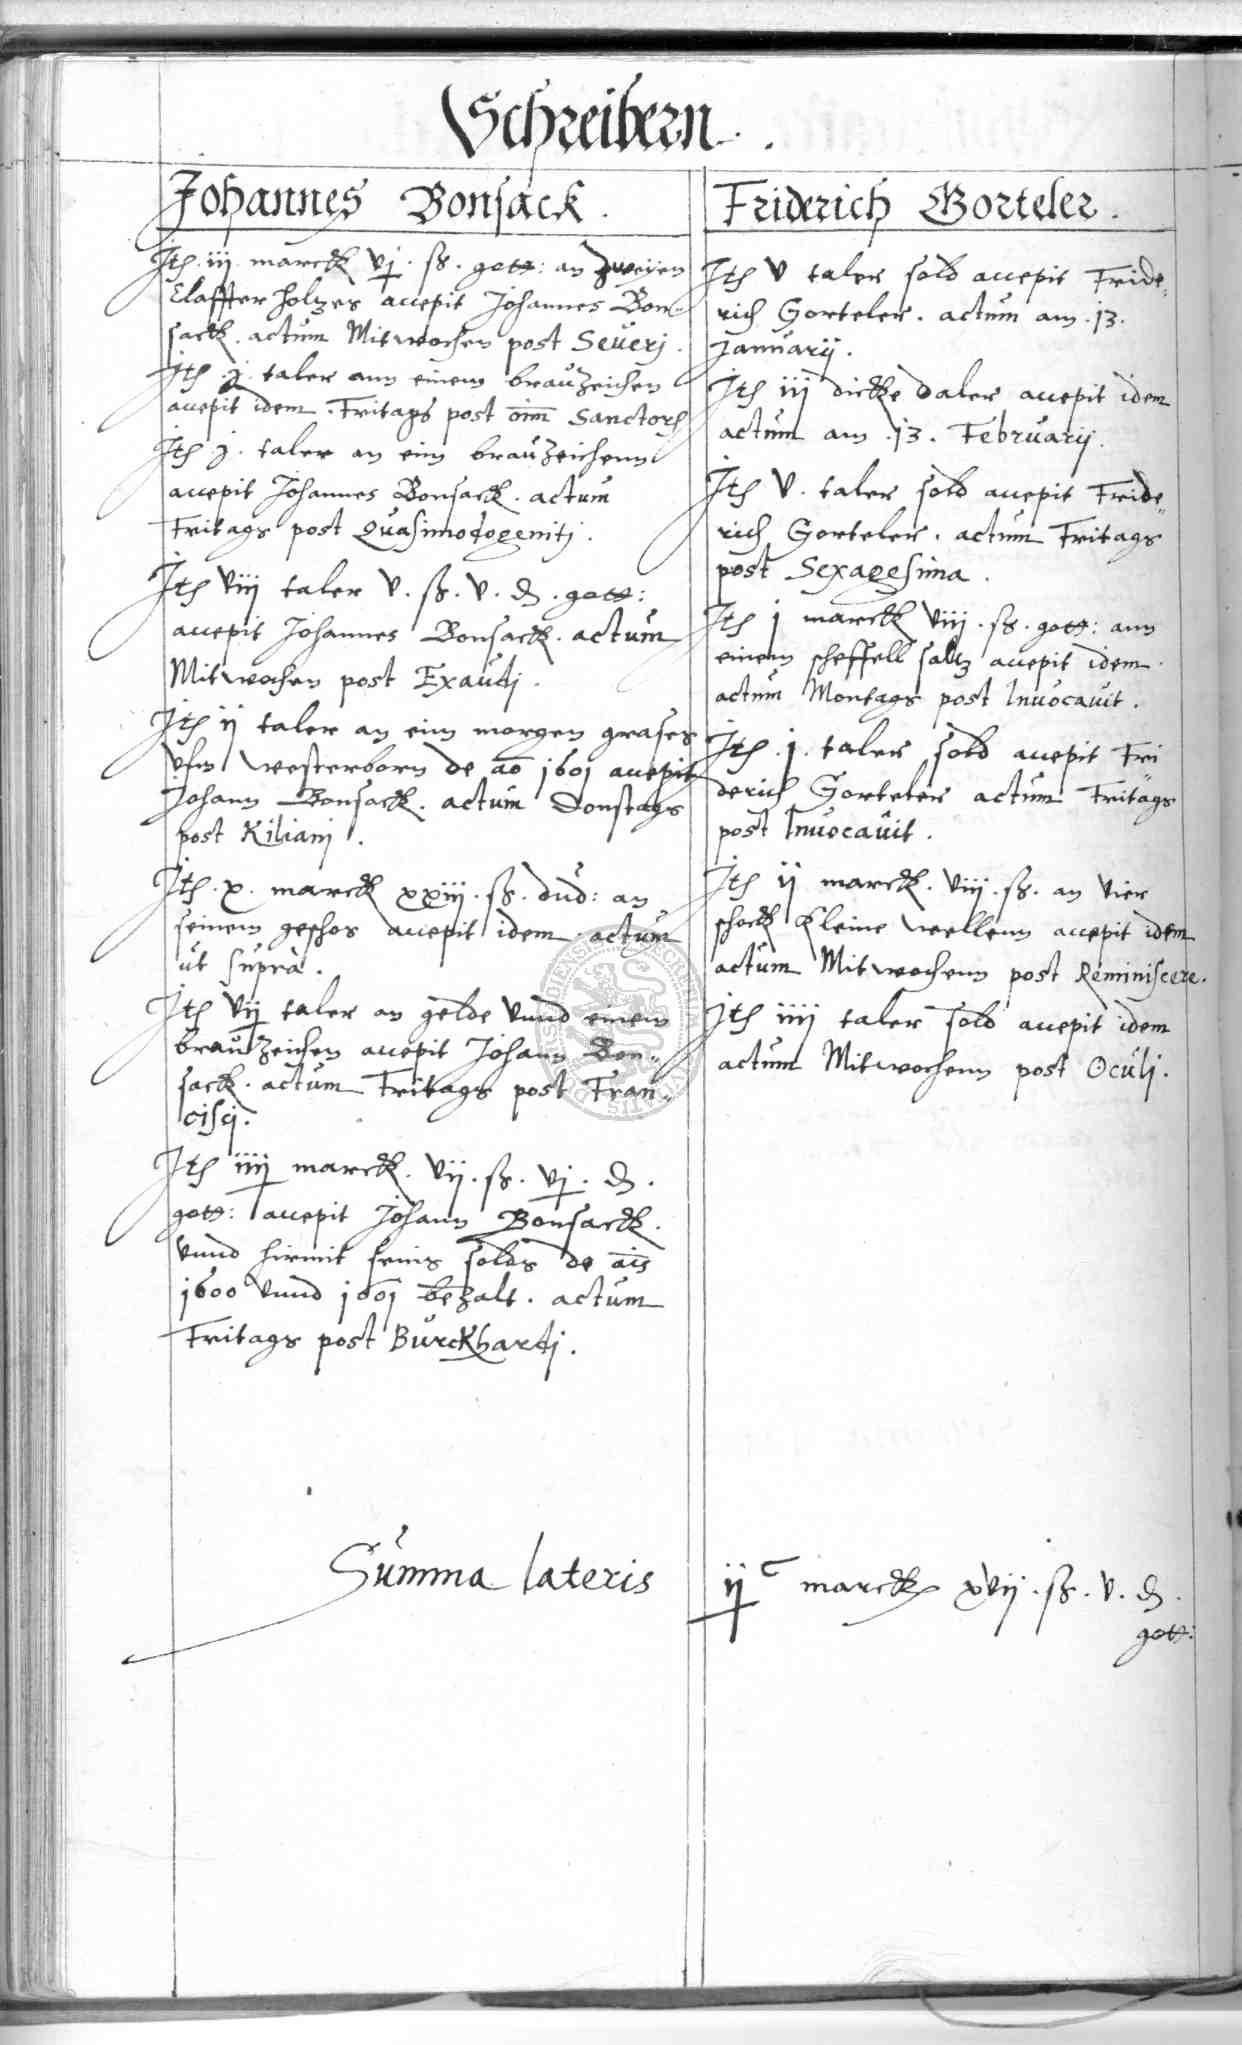 Schreibern.
Johannes Bonsack.
Jtem iij marckh vj. ß. gott: an zweyen
Claffter holtzes accepit Johannes Bon-
sackh. actum Mitwochen post Severj.
Jtem .j. taler ann einem brauzeichen
accepit idem. Fritags post oim Sanctorum
Jtem j. taler an eim brauzeichenn
accepit Johannes Bonsackh. actum
Fritags post Quasimodogenitj.
Jtem viij taler v. ß. v. d. gott:
accepit Johannes Bonsackh. actum
Mitwochen post Exaudj.
Jtem ij taler an eim morgen grases
vfm Westerborn de ao 1601 accepit
Johann Bonsackh. actum Donstags
post Kilianj.
Jtem .x. marckh xxiij. ß. dud: an
seinem geschos accepit idem actum
ut supra.
Jtem vij taler an gelde vnnd einem
brauzeichen accepit Johann Bon-
sackh. actum Fritags post Fran-
ciscj.
Jtem iiij marckh. vij. ß. vj. d.
gott: accepit Johann Bonsackh.
vnnd hirmit seins solds de ais
1600 vnnd 1601 bezalt. actum
Fritags post Burckhardj.
Friderich Gorteler.
Jtem v taler sold accepit Fride-
rich Gorteler. actum am .13.
January.
Jtem iij dickhe daler accepit idem
actum am .13. February.
Jtem v. taler sold accepit Fride-
rich Gorteler. actum Fritags
post Sexagesima.
Jtem j marckh viij. ß. gott: ann
einem scheffell saltz accepit idem.
actum Montags post Invocavit.
Jtem .j. taler sold accepit Fri
derich Gorteler actum Fritags
post Invocavit.
Jtem ij marckh. viij. ß. an vier
schockh kleine wellenn accepit idem
actum Mitwochenn post Reminiscere.
Jtem iiij taler sold accepit idem
actum Mitwochenn post Oculj.
Summa lateris ij c marckh xvij. ß. v. d.
gott: